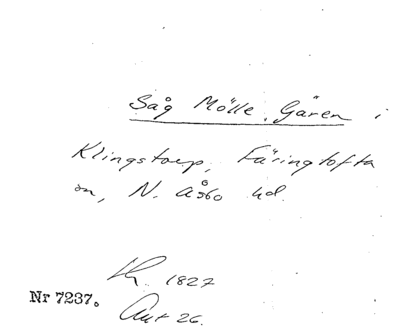 Såg Mölle Gären i
Klingstorp, Färingtofta
sn, N. Åsbo hd.
1827
Nr 7237.
Aut 26.